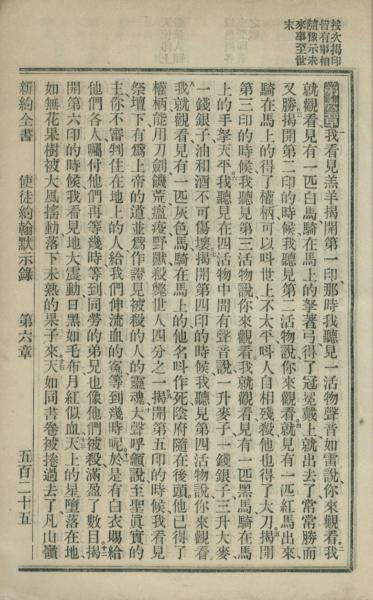 按次揭印
皆有事相
隨像示未
來事至世
末
第六章我看見羔羊揭開第一印那時我聽見一活物聲音如雷說你來觀看我
就觀看見有一匹白馬騎在馬上的拏著弓得了冠冕戴上就出去了常常勝而
又勝揭開第二印的時候我聽見第二活物說你來觀看就見有一匹紅馬出來
騎在馬上的得了權柄可以呌世上不太平呌人自相殘殺他也得了大刀揭開
第三印的時候我聽見第三活物說你來觀看我就觀看見有一匹黑馬騎在馬
上的手拏天平我聽見在四活物中間有聲音說一升麥子一錢銀子三升大麥
一錢銀子油和酒不可傷壞揭開第四印的時候我聽見第四活物說你來觀看
我就觀看見有一匹灰色馬騎在馬上的他名呌作死陰府隨在後頭他已得了
權柄能用刀劍饑荒瘟疫野獸殺斃世人四分之一揭開第五印的時候我看見
祭壇下有爲上帝的道並爲作證見被殺的人的靈魂大聲呼籲說至聖眞實的
主你不審判住在地上的人給我們伸流血的寃等到幾時呢於是有白衣賜給
他們各人囑付他們再等幾時等到同勞的弟兄也像他們被殺滿盈了數目揭
開第六印的時候我看見地大震動日黑如毛布月紅似血天上的星墮落在地
如無花果樹被大風搖動落下未熟的果子來天如同書卷被捲過去了凡山嶺
新約全書 使徒約翰默示錄 第六章 五百二十五